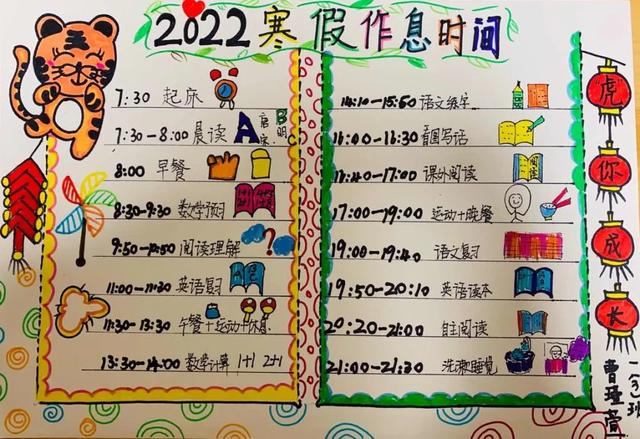 2022寒假作息时间
7:30 起床
7:30-8:00晨读
A
B
8:00 早餐
8:30-9:30 数学预习
9:50-10:50 阅读理解 ?
11:00-11:30 英语复习
11:30-13:30 午餐+运动+休息
13:30-14:00 数学计算 1+1 2+1
14:10-15:50 语文练字
16:00-16:30 看图写话
16:40-17:00 课外阅读
17:00-19:00 运动+晚餐
19:00-19:40 语文复习
19:50-20:10 英语读本
20:20-21:00 自主阅读
21:00-21:30 洗漱睡觉
虎
你
成
长